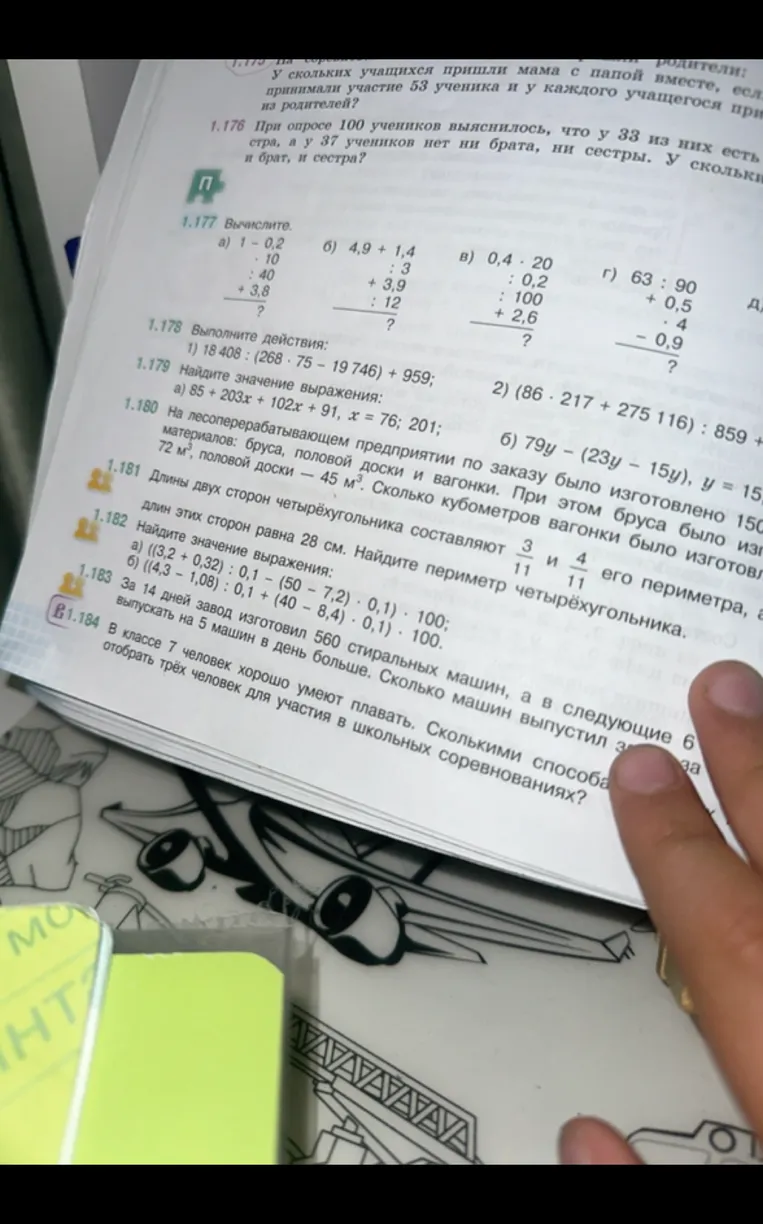 У скольких учащихся пришли мама с папой вместе,
принимали участие 53 ученика и у каждого учащегося
из родителей?
1.176 При опросе 100 учеников выяснилось, что у 33 из них есть
стра, а у 37 учеников нет ни брата, ни сестры. У
и брат, и сестра?
П
1.177 Вычислите.
а) 1 – 0,2 б) 4,9 + 1,4 в) 0,4 · 20 г) 63 : 90
· 10 : 3 : 0,2 + 0,5
: 40 + 3,9 : 100 · 4
+ 3,8 : 12 + 2,6 – 0,9
? ? ? ?
1.178 Выполните действия:
1) 18 408 : (268 · 75 – 19 746) + 959; 2) (86 · 217 + 275 116) : 859 +
1.179 Найдите значение выражения:
а) 85 + 203x + 102x + 91, x = 76; 201; б) 79y – (23y – 15y), y = 15,
1.180 На лесоперерабатывающем предприятии по заказу было изготовлено
материалов: бруса, половой доски и вагонки. При этом бруса было
72 м³, половой доски — 45 м³. Сколько кубометров вагонки было
1.181 Длины двух сторон четырёхугольника составляют 3/11 и 4/11 его периметра, а
длин этих сторон равна 28 см. Найдите периметр четырёхугольника.
1.182 Найдите значение выражения:
а) ((3,2 + 0,32) : 0,1 – (50 – 7,2) · 0,1) · 100;
б) ((4,3 – 1,08) : 0,1 + (40 – 8,4) · 0,1) · 100.
1.183 За 14 дней завод изготовил 560 стиральных машин, а в следующие 6
выпускать на 5 машин в день больше. Сколько машин выпустил за
1.184 В классе 7 человек хорошо умеют плавать. Сколькими
отобрать трёх человек для участия в школьных соревнованиях?